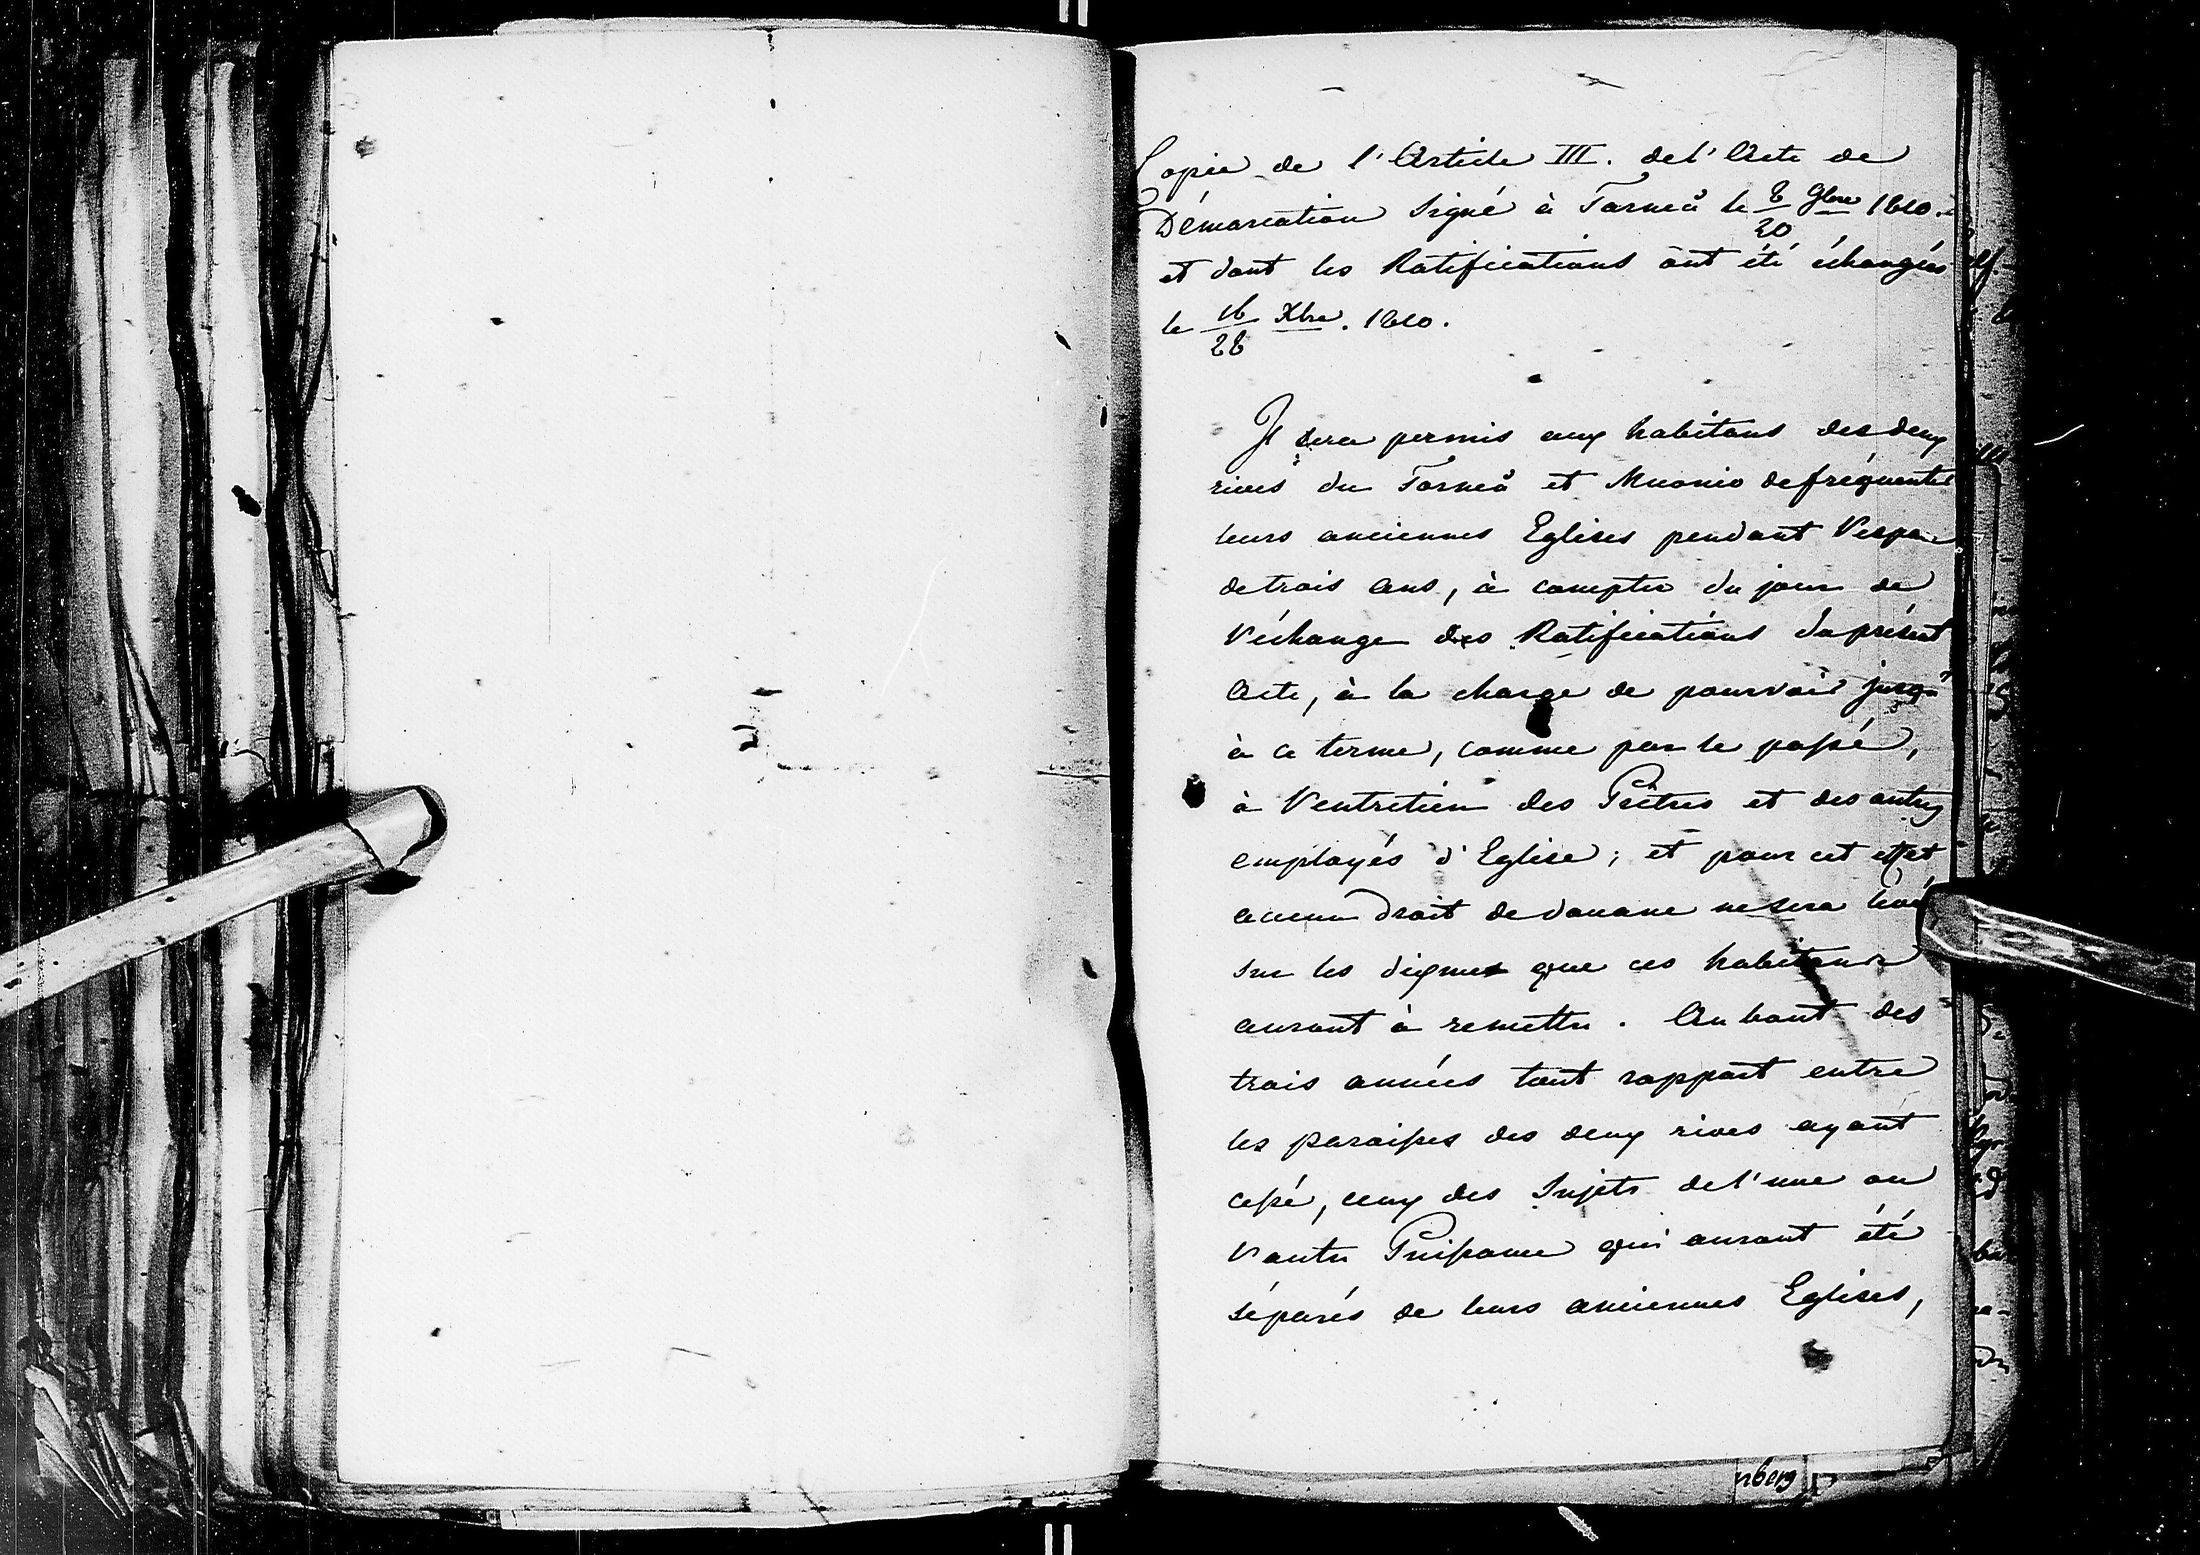 Copie de l'Article III. de l'Acte de
Démarcation signé à Torneå le 8/20 9bre 1810.
et dont les Ratifications ont été échangées
le 16/28 Xbre. 1810.
Il sera permis aux habitans des deux
rives du Torneå et Muonio de fréquenter
leurs anciennes Eglises pendant l'espace
de trois ans, à compter du jour de
l'échange des Ratifications du présent
Acte, à la charge de pourvoir jusqu'
à ce terme, comme par le passé,
à l'entretien des Prêtres et des autres
employés d'Eglise; et pour cet effet
aucun droit de douane ne sera levé
sur les dixmes que ces habitans
auront à remettre. Au bout des
trois années tout rapport entre
les paroisses des deux rives ayant
cessé, ceux des Sujets de l'une ou
l'autre Puissance qui auront été
séparés de leurs anciennes Eglises,
nberg